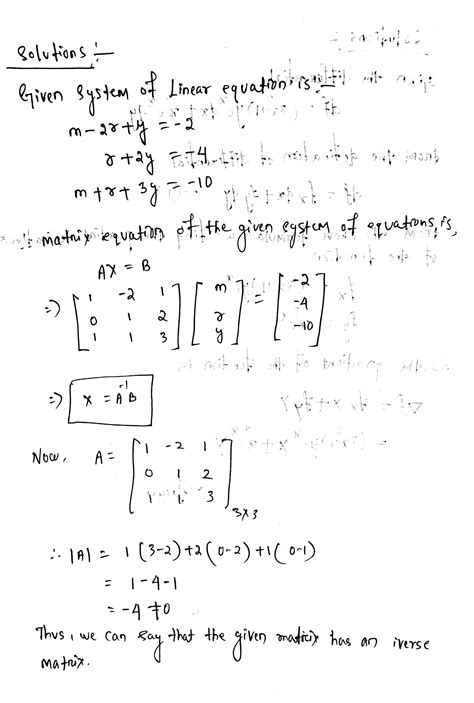 Solutions :-
Given System of Linear equation is :-
m-2r+y = -2
r+2y = -4
m+r+3y = -10
∴ matrix equation of the given system of equations, is,
AX = B
=> [1 -2 1 / 0 1 2 / 1 1 3] [m / r / y] = [-2 / -4 / -10]
=> X = A⁻¹B
Now, A = [1 -2 1 / 0 1 2 / 1 1 3] 3x3
∴ |A| = 1(3-2)+2(0-2)+1(0-1)
= 1-4-1
= -4 ≠ 0
Thus, we can say that the given matricix has an iverse
matrix.